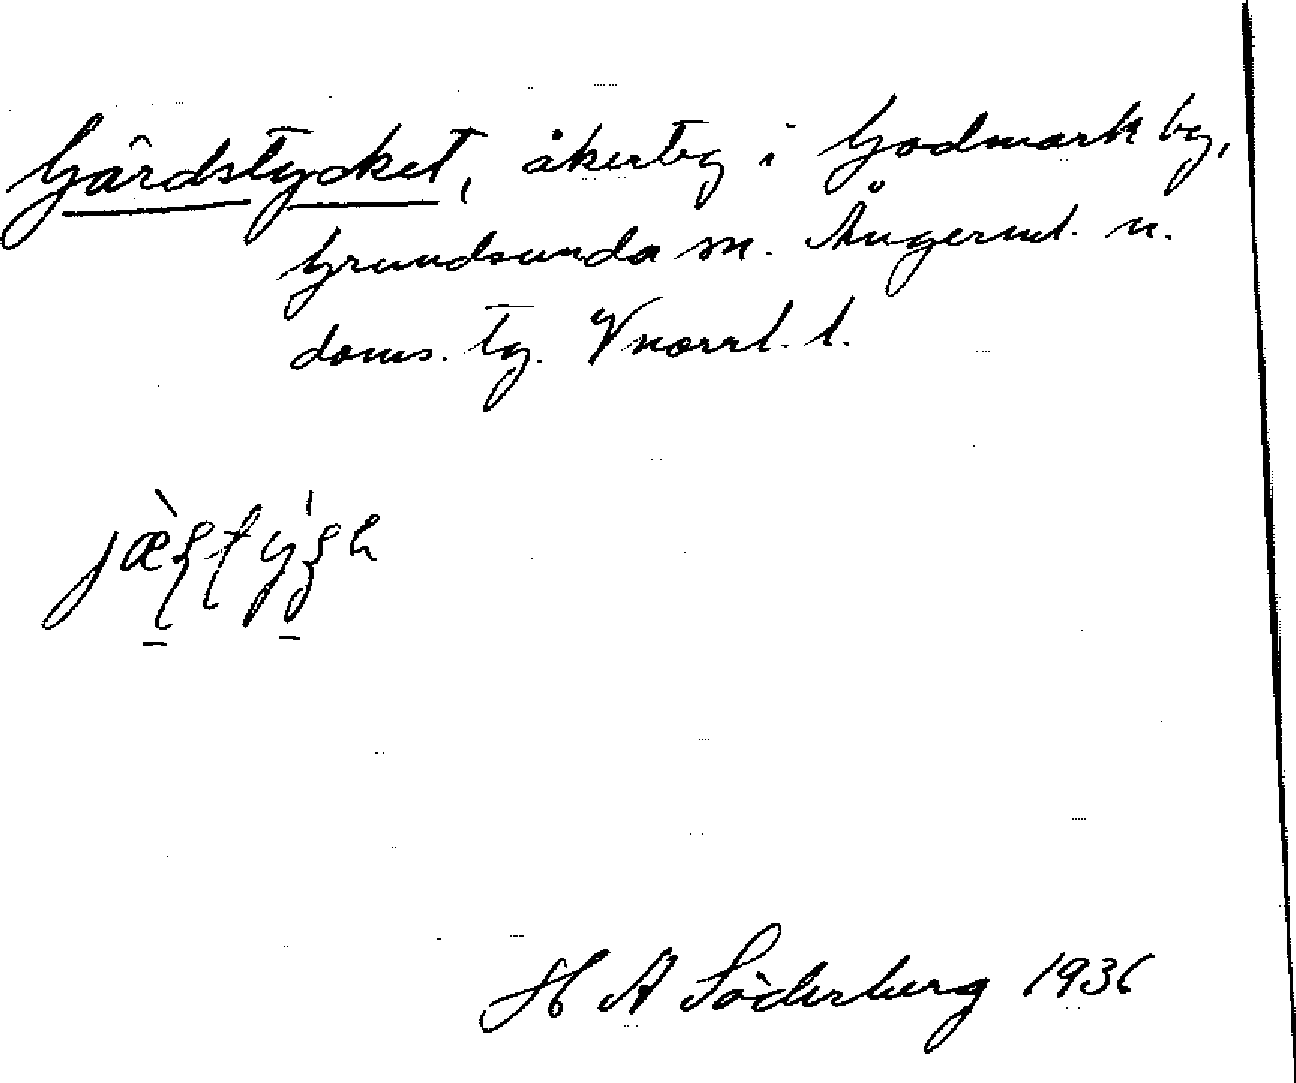 Gärdstycket, åkerteg i Godmark by,
Grundsunda sn. Ångerml. n.
doms. tg. Vnorrl. l.
H A Söderberg 1936